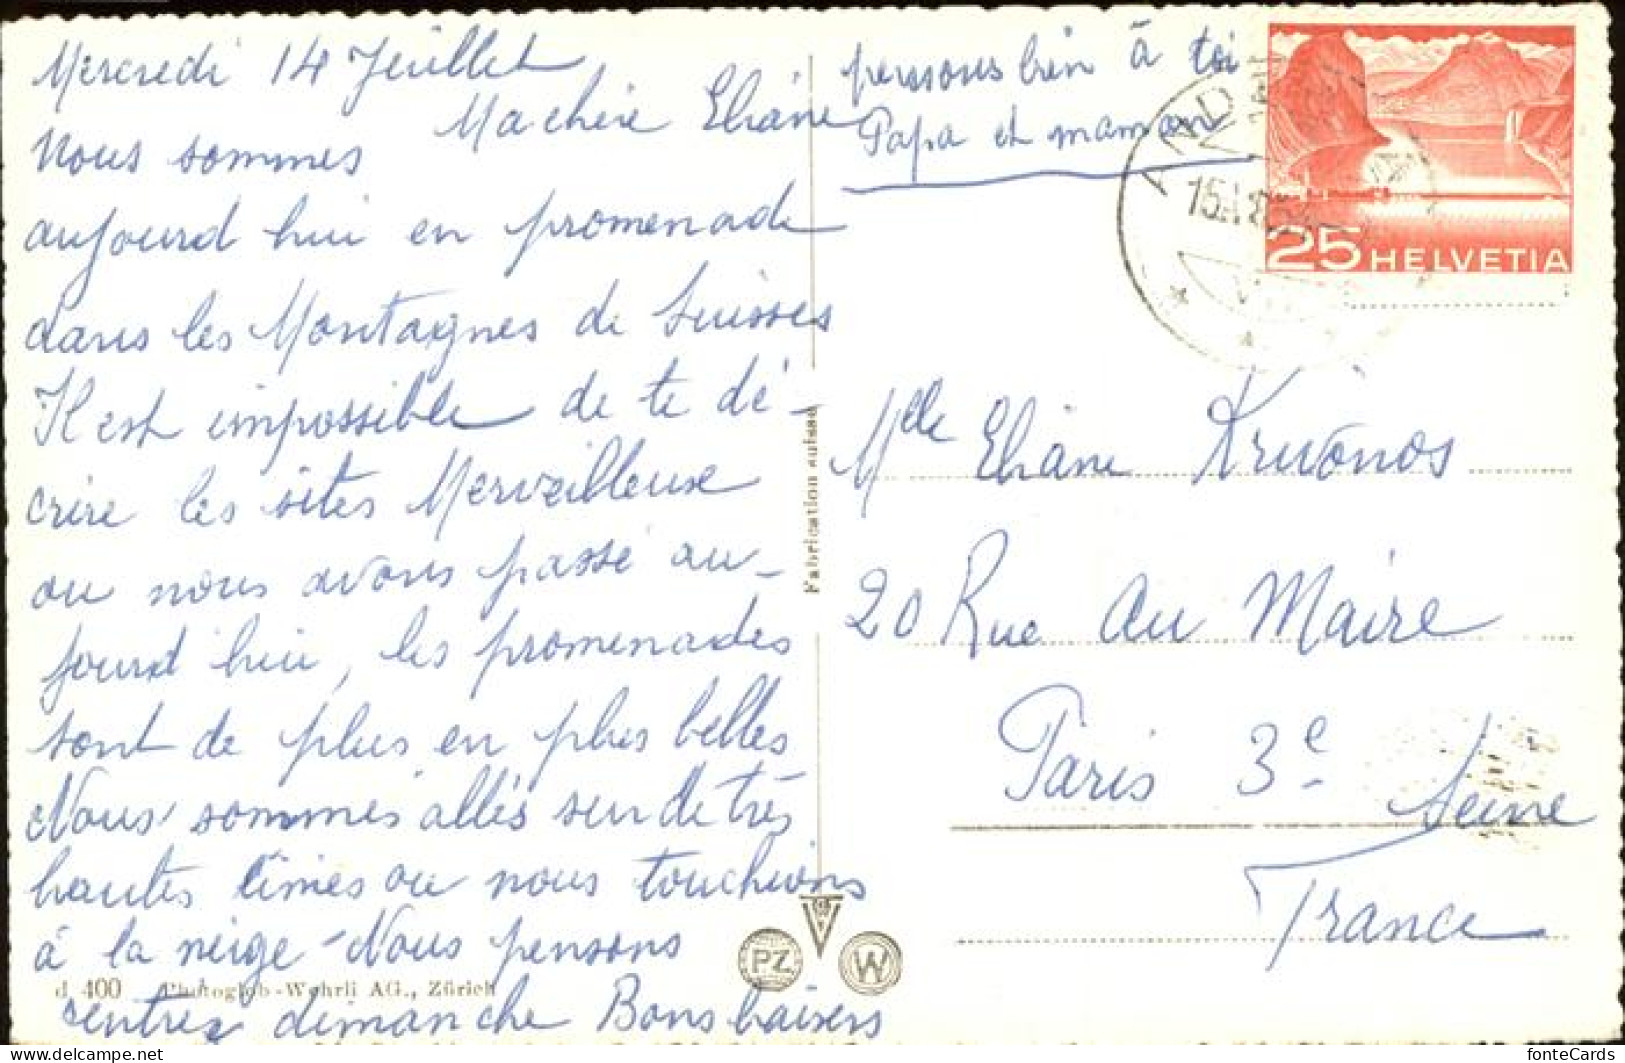 Mercredi 14 Juillet
Ma chère Eliane
Nous sommes
aujourd hui en promenade
dans les Montagnes de Suisses
Il est impossible de te dé-
crire les sites Merveilleuse
ou nous avons passé au-
jourd hui, les promenades
sont de plus en plus belles
Nous sommes allés sur de très
hautes cimes ou nous touchions
à la neige - Nous pensons
rentrez dimanche Bons baisers
pensons bien à toi
Papa et maman
25 HELVETIA
Mlle Eliane Kruvonos
20 Rue au Maire
Paris 3e
Seine
France
Fabrication suisse
PZ W
d 400 Photoglob-Wehrli AG., Zürich
fonteCards